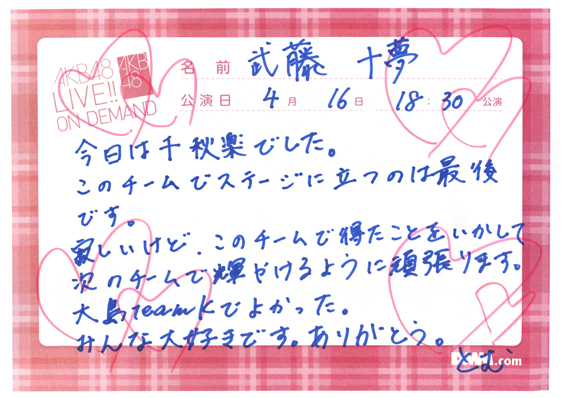 AKB48
LIVE!!
ON DEMAND
AKB
48
名前 武藤 十夢
公演日 4月 16日 18:30公演
今日は千秋楽でした。
このチームでステージに立つのは最後
です。
寂しいけど、このチームで得たことをいかして
次のチームで輝やけるように頑張ります。
大島teamKでよかった。
みんな大好きです。ありがとう。
とむ
.com